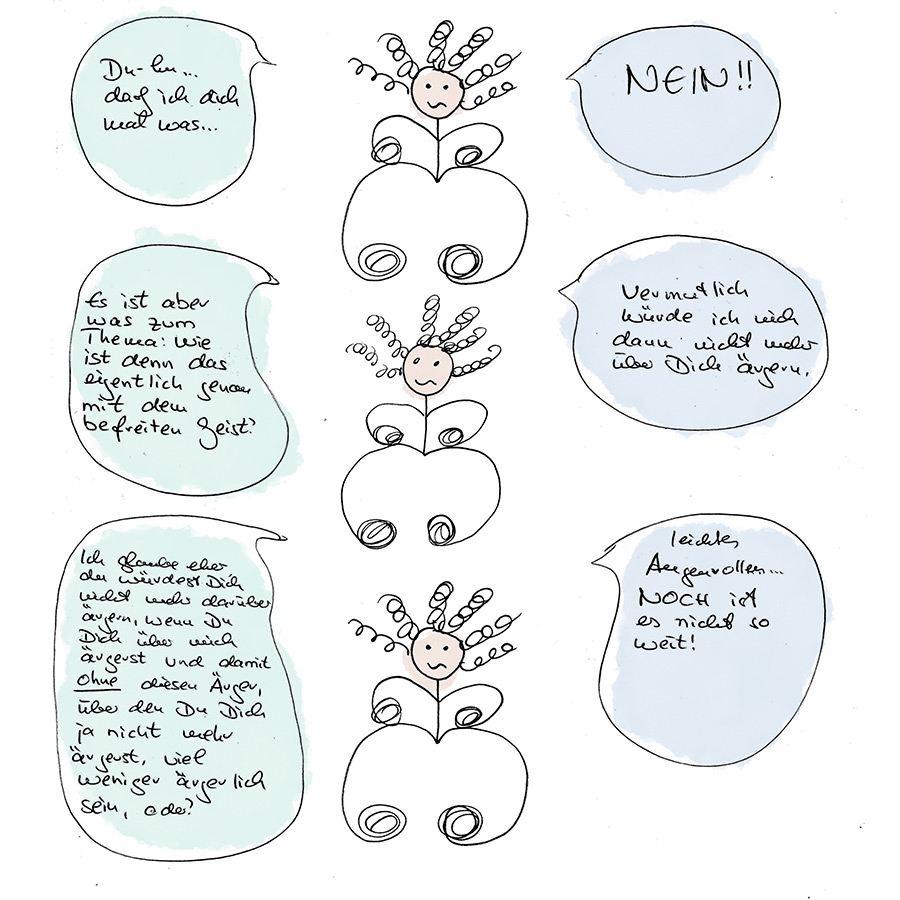 Du-hu...
darf ich dich
mal was...
NEIN!!
Es ist aber
was zum
Thema: Wie
ist denn das
eigentlich genau
mit dem
befreiten Geist?
Vermutlich
würde ich mich
dann nicht mehr
über Dich ärgern.
Ich glaube eher
du würdest Dich
nicht mehr darüber
ärgern, wenn Du
Dich über mich
ärgerst und damit
ohne diesen Ärger,
über den Du Dich
ja nicht mehr
ärgerst, viel
weniger ärgerlich
sein, oder?
leichtes
Augenrollen...
NOCH ist
es nicht so
weit!